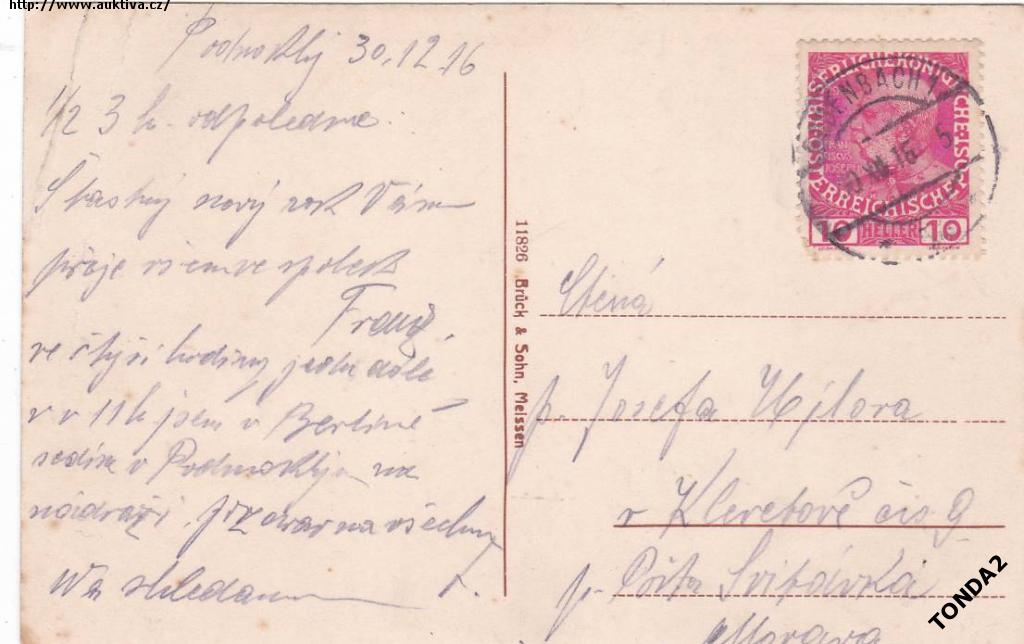 http://www.auktiva.cz/
Podmokly 30.12.16
1/2 3 h. odpoledne.
Štastný nový rok Vám
přeje všem ve spolek
Franz.
ve čtyři hodiny jedu dále
v v 11h jsem v Berlíně
sedím v Podmoklých na
nádraží. pozdrav na všechny
Na shledanou
F.
11826 Brück & Sohn, Meissen
BODENBACH 1
16 5
KÖNIGLICHE
ÖSTERREICHISCHE POST
10 HELLER 10
Ctěná
p. Josefa
v čís 9
p. Pošta Svitávka
Morava
TONDA2